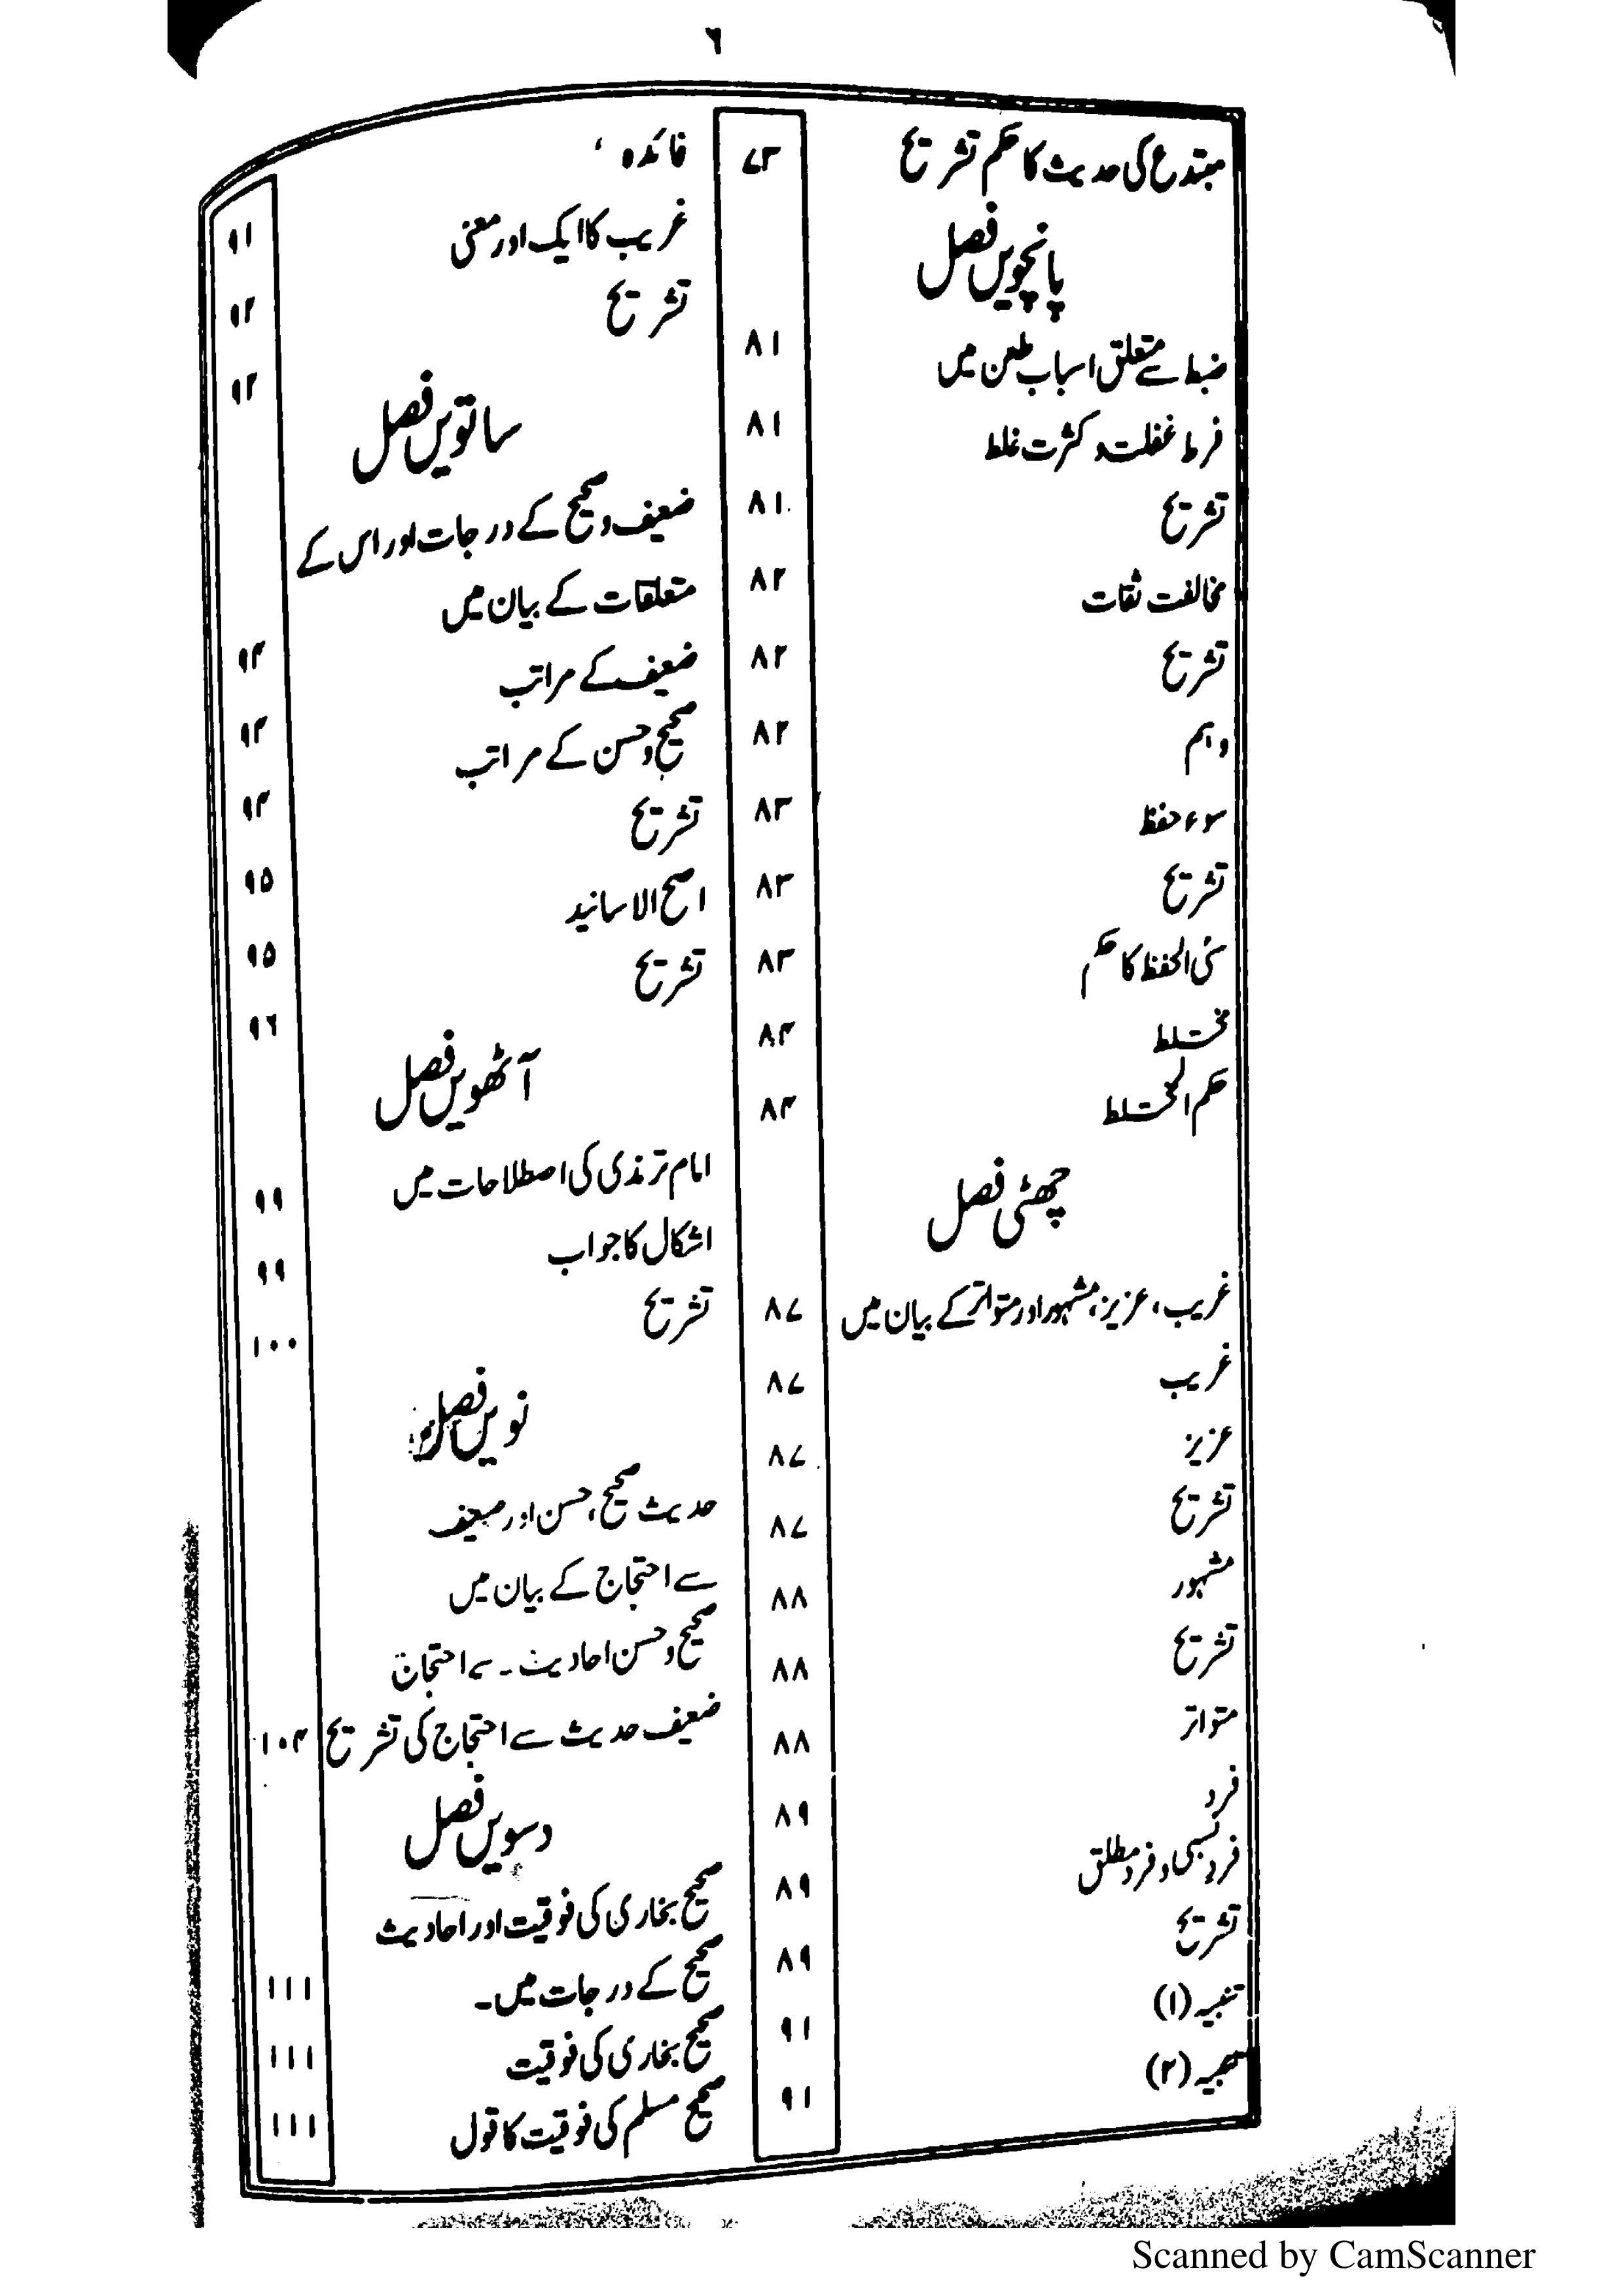 ٦
مبتدع کی حدیث کا حکم تشریح ۷۳
پانچویں فصل
ضبط سے متعلق اسباب طعن میں ۸۱
فرط غفلت و کثرت غلط ۸۱
تشریح ۸۱
مخالفت ثقات ۸۲
تشریح ۸۲
وہم ۸۲
سوء حفظ ۸۳
تشریح ۸۳
سئی الحفظ کا حکم ۸۳
مختلط ۸۴
حکم المختلط ۸۴
چھٹی فصل
غریب، عزیز، مشہور اور متواتر کے بیان میں ۸۷
غریب ۸۷
عزیز ۸۷
تشریح ۸۷
مشہور ۸۸
تشریح ۸۸
متواتر ۸۸
فرد ۸۹
فرد نسبی و فرد مطلق ۸۹
تشریح ۸۹
تنبیہ (۱) ۹۱
تنبیہ (۲) ۹۱
فائدہ ۹۱
غریب کا ایک اور معنی ۹۲
تشریح ۹۲
ساتویں فصل
ضعیف و صحیح کے درجات اور اس کے
متعلقات کے بیان میں ۹۴
ضعیف کے مراتب ۹۴
صحیح و حسن کے مراتب ۹۴
تشریح ۹۵
اصح الاسانید ۹۵
تشریح ۹۶
آٹھویں فصل
امام ترمذی کی اصطلاحات میں ۹۹
اشکال کا جواب ۹۹
تشریح ۱۰۰
نویں فصل
حدیث صحیح، حسن اور ضعیف
سے احتجاج کے بیان میں
صحیح و حسن احادیث سے احتجاج
ضعیف حدیث سے احتجاج کی تشریح ۱۰۴
دسویں فصل
صحیح بخاری کی فوقیت اور احادیث
صحیح کے درجات میں۔ ۱۱۱
صحیح بخاری کی فوقیت ۱۱۱
صحیح مسلم کی فوقیت کا قول ۱۱۱
Scanned by CamScanner